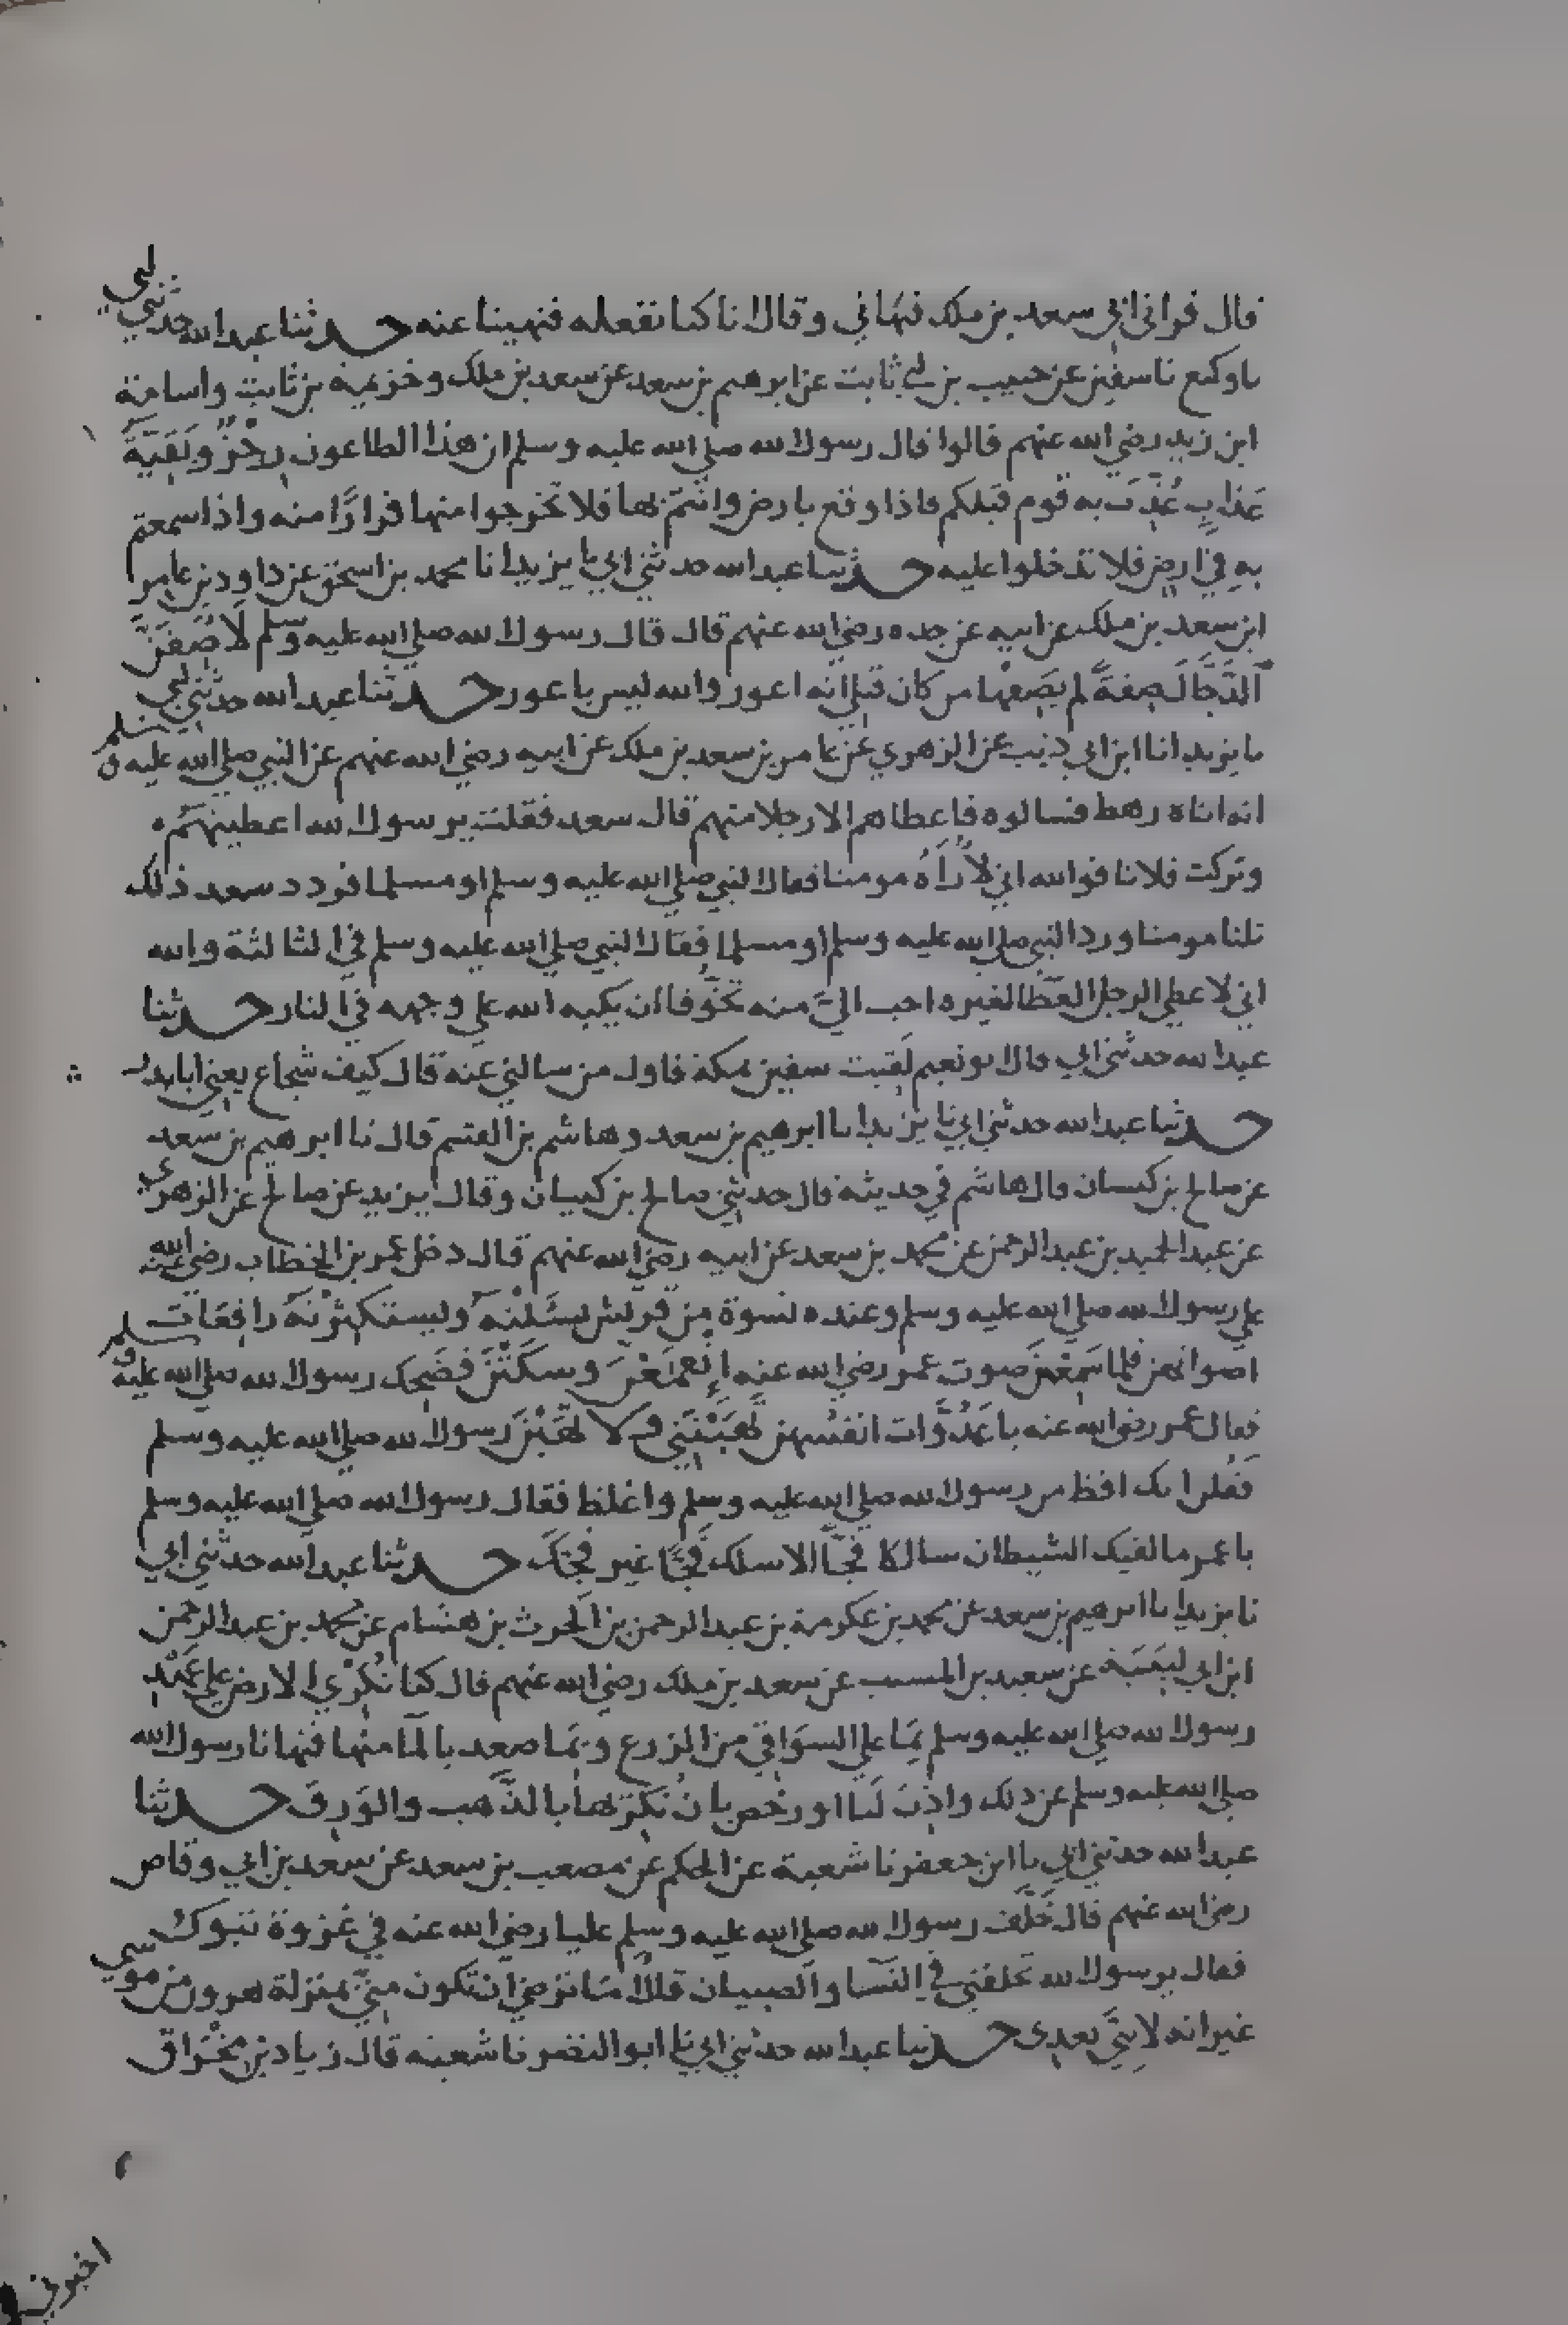 قال فراني ابي سعد بن ملك فنهاني وقال انا كنا نفعله فنهينا عنه حدثنا عبد الله حدثني ابي
نا وكيع نا سفين عن حبيب بن ابي ثابت عن ابرهيم بن سعد عن سعد بن ملك وخزيمة بن ثابت واسامة
ابن زيد رضي الله عنهم قالوا قال رسول الله صلي الله عليه وسلم ان هذا الطاعون رجز وبقية
عذاب عذب به قوم قبلكم فاذا وقع بارض وانتم بها فلا تخرجوا منها فرارا منه واذا سمعتم
به في ارض فلا تدخلوا عليه حدثنا عبد الله حدثني ابي نا يزيد انا محمد بن اسحق عن داود بن عامر
ابن سعد بن ملك عن ابيه عن جده رضي الله عنهم قال قال رسول الله صلي الله عليه وسلم لاصفن
الدجال صفة لم يصفها من كان قبلي انه اعور والله ليس باعور حدثنا عبد الله حدثني ابي
نا يزيد انا ابن ابي ذيب عن الزهري عن عامر بن سعد بن ملك عن ابيه رضي الله عنهم عن النبي صلي الله عليه وسلم
انه اتاه رهط فسالوه فاعطاهم الا رجلا منهم قال سعد فقلت يرسول الله اعطيتهم
وتركت فلانا فوالله اني لاراه مومنا فقال النبي صلي الله عليه وسلم او مسلما فردد سعد ذلك
ثلثا مومنا ورد النبي صلي الله عليه وسلم او مسلما فقال النبي صلي الله عليه وسلم في الثالثة والله
اني لاعطي الرجل العطا لغيره احب الي منه تخوفا ان يكبه الله علي وجهه في النار حدثنا
عبد الله حدثني ابي قال ابو نعيم لقيت سفين بمكة فاول من سالني عنه قال كيف شجاع يعني ابا بدر
حدثنا عبد الله حدثني ابي نا يزيد انا ابرهيم بن سعد وهاشم بن القسم قال نا ابرهيم بن سعد
عن صالح بن كيسان قال هاشم في حديثه قال حدثني صالح بن كيسان وقال يزيد عن صالح عن الزهري
عن عبد الحميد بن عبد الرحمن عن محمد بن سعد عن ابيه رضي الله عنهم قال دخل عمر بن الخطاب رضي الله عنه
علي رسول الله صلي الله عليه وسلم وعنده نسوة من قريش يسئلنه ويستكثرنه رافعات
اصواتهن فلما سمعن صوت عمر رضي الله عنه انقمعن وسكتن فضحك رسول الله صلي الله عليه وسلم
فقال عمر رضي الله عنه يا عدوات انفسهن تهبنني ولا تهبن رسول الله صلي الله عليه وسلم
فقلن انك افظ من رسول الله صلي الله عليه وسلم واغلظ فقال رسول الله صلي الله عليه وسلم
يا عمر ما لقيك الشيطان سالكا فجا الا سلك فجا غير فجك حدثنا عبد الله حدثني ابي
نا يزيد انا ابرهيم بن سعد عن محمد بن عكرمة بن عبد الرحمن بن الحرث بن هشام عن محمد بن عبد الرحمن
ابن ابي لبيبة عن سعيد بن المسيب عن سعد بن ملك رضي الله عنهم قال كنا نكري الارض علي عهد
رسول الله صلي الله عليه وسلم بما علي السواقي من الزرع وبما صعد بالما منها فنهانا رسول الله
صلي الله عليه وسلم عن ذلك واذن لنا او رخص بان نكريها بالذهب والورق حدثنا
عبد الله حدثني ابي نا ابن جعفر نا شعبة عن الحكم عن مصعب بن سعد عن سعد بن ابي وقاص
رضي الله عنهم قال خلف رسول الله صلي الله عليه وسلم عليا رضي الله عنه في غزوة تبوك
فقال يرسول الله تخلفني في النسا والصبيان قال اما ترضي ان تكون مني بمنزلة هرون من موسي
غير انه لا نبي بعدي حدثنا عبد الله حدثني ابي نا ابو النضر نا شعبة قال زياد بن مخراق
اخبرني